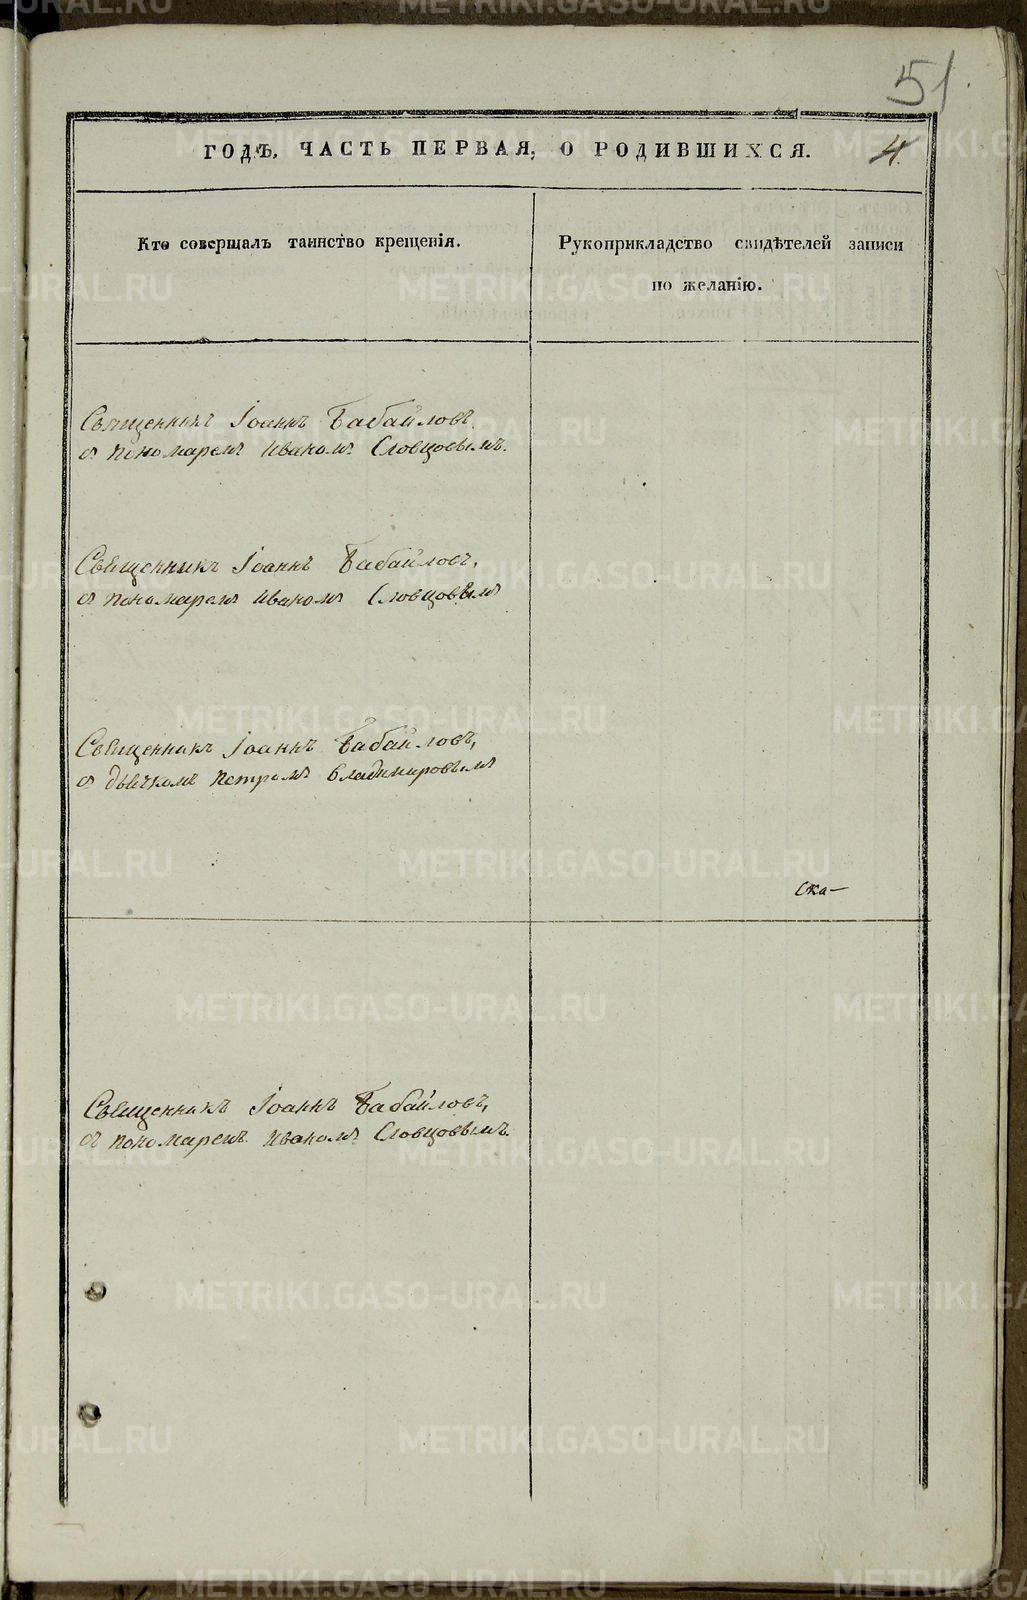 51
ГОДЪ, ЧАСТЬ ПЕРВАЯ, О РОДИВШИХСЯ.
4.
Кто совершалъ таинство крещенія.
Рукоприкладство свидѣтелей записи
по желанію.
Священникъ Іоаннъ Бабайловъ,
съ пономаремъ Иваномъ Словцовымъ.
Священникъ Іоаннъ Бабайловъ,
съ пономаремъ Иваномъ Словцовымъ
Священникъ Іоаннъ Бабайловъ,
съ дьячкомъ Петромъ Владимировымъ
Ска—
Священникъ Іоаннъ Бабайловъ,
съ пономаремъ Иваномъ Словцовымъ.
METRIKI.GASO-URAL.RU